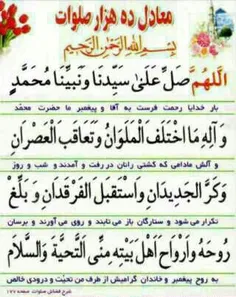 معادل ده هزار صلوات
بِسْمِ اللهِ الرَّحْمنِ الرَّحيمِ
اَللّهُمَّ صَلِّ عَلىٰ سَيِّدِنا وَنَبِيِّنا مُحَمَّدٍ
بار خدایا رحمت فرست به آقا و پیغمبر ما حضرت محمّد
وَ آلِهِ مَا اخْتَلَفَ الْمَلَوَانُ وَتَعاقَبَ الْعَصْرانِ
و آلش مادامی که کشتی رانان در رفت و آمدند و شب و روز
وَكَرَّ الْجَديدانِ وَاسْتَقْبَلَ الْفَرْقَدانِ وَ بَلِّغْ
تکرار می شود و ستارگان باز می تابند و روی می آورند و برسان
رُوحَهُ وَاَرْواحَ اَهْلِ بَيْتِهِ مِنِّى التَّحِيَّةَ وَالسَّلامَ
به روح پیغمبر و خاندان گرامیش از طرف من تحیّت و درودی خالص
شرح فضائل صلوات صفحه ۱۷۷